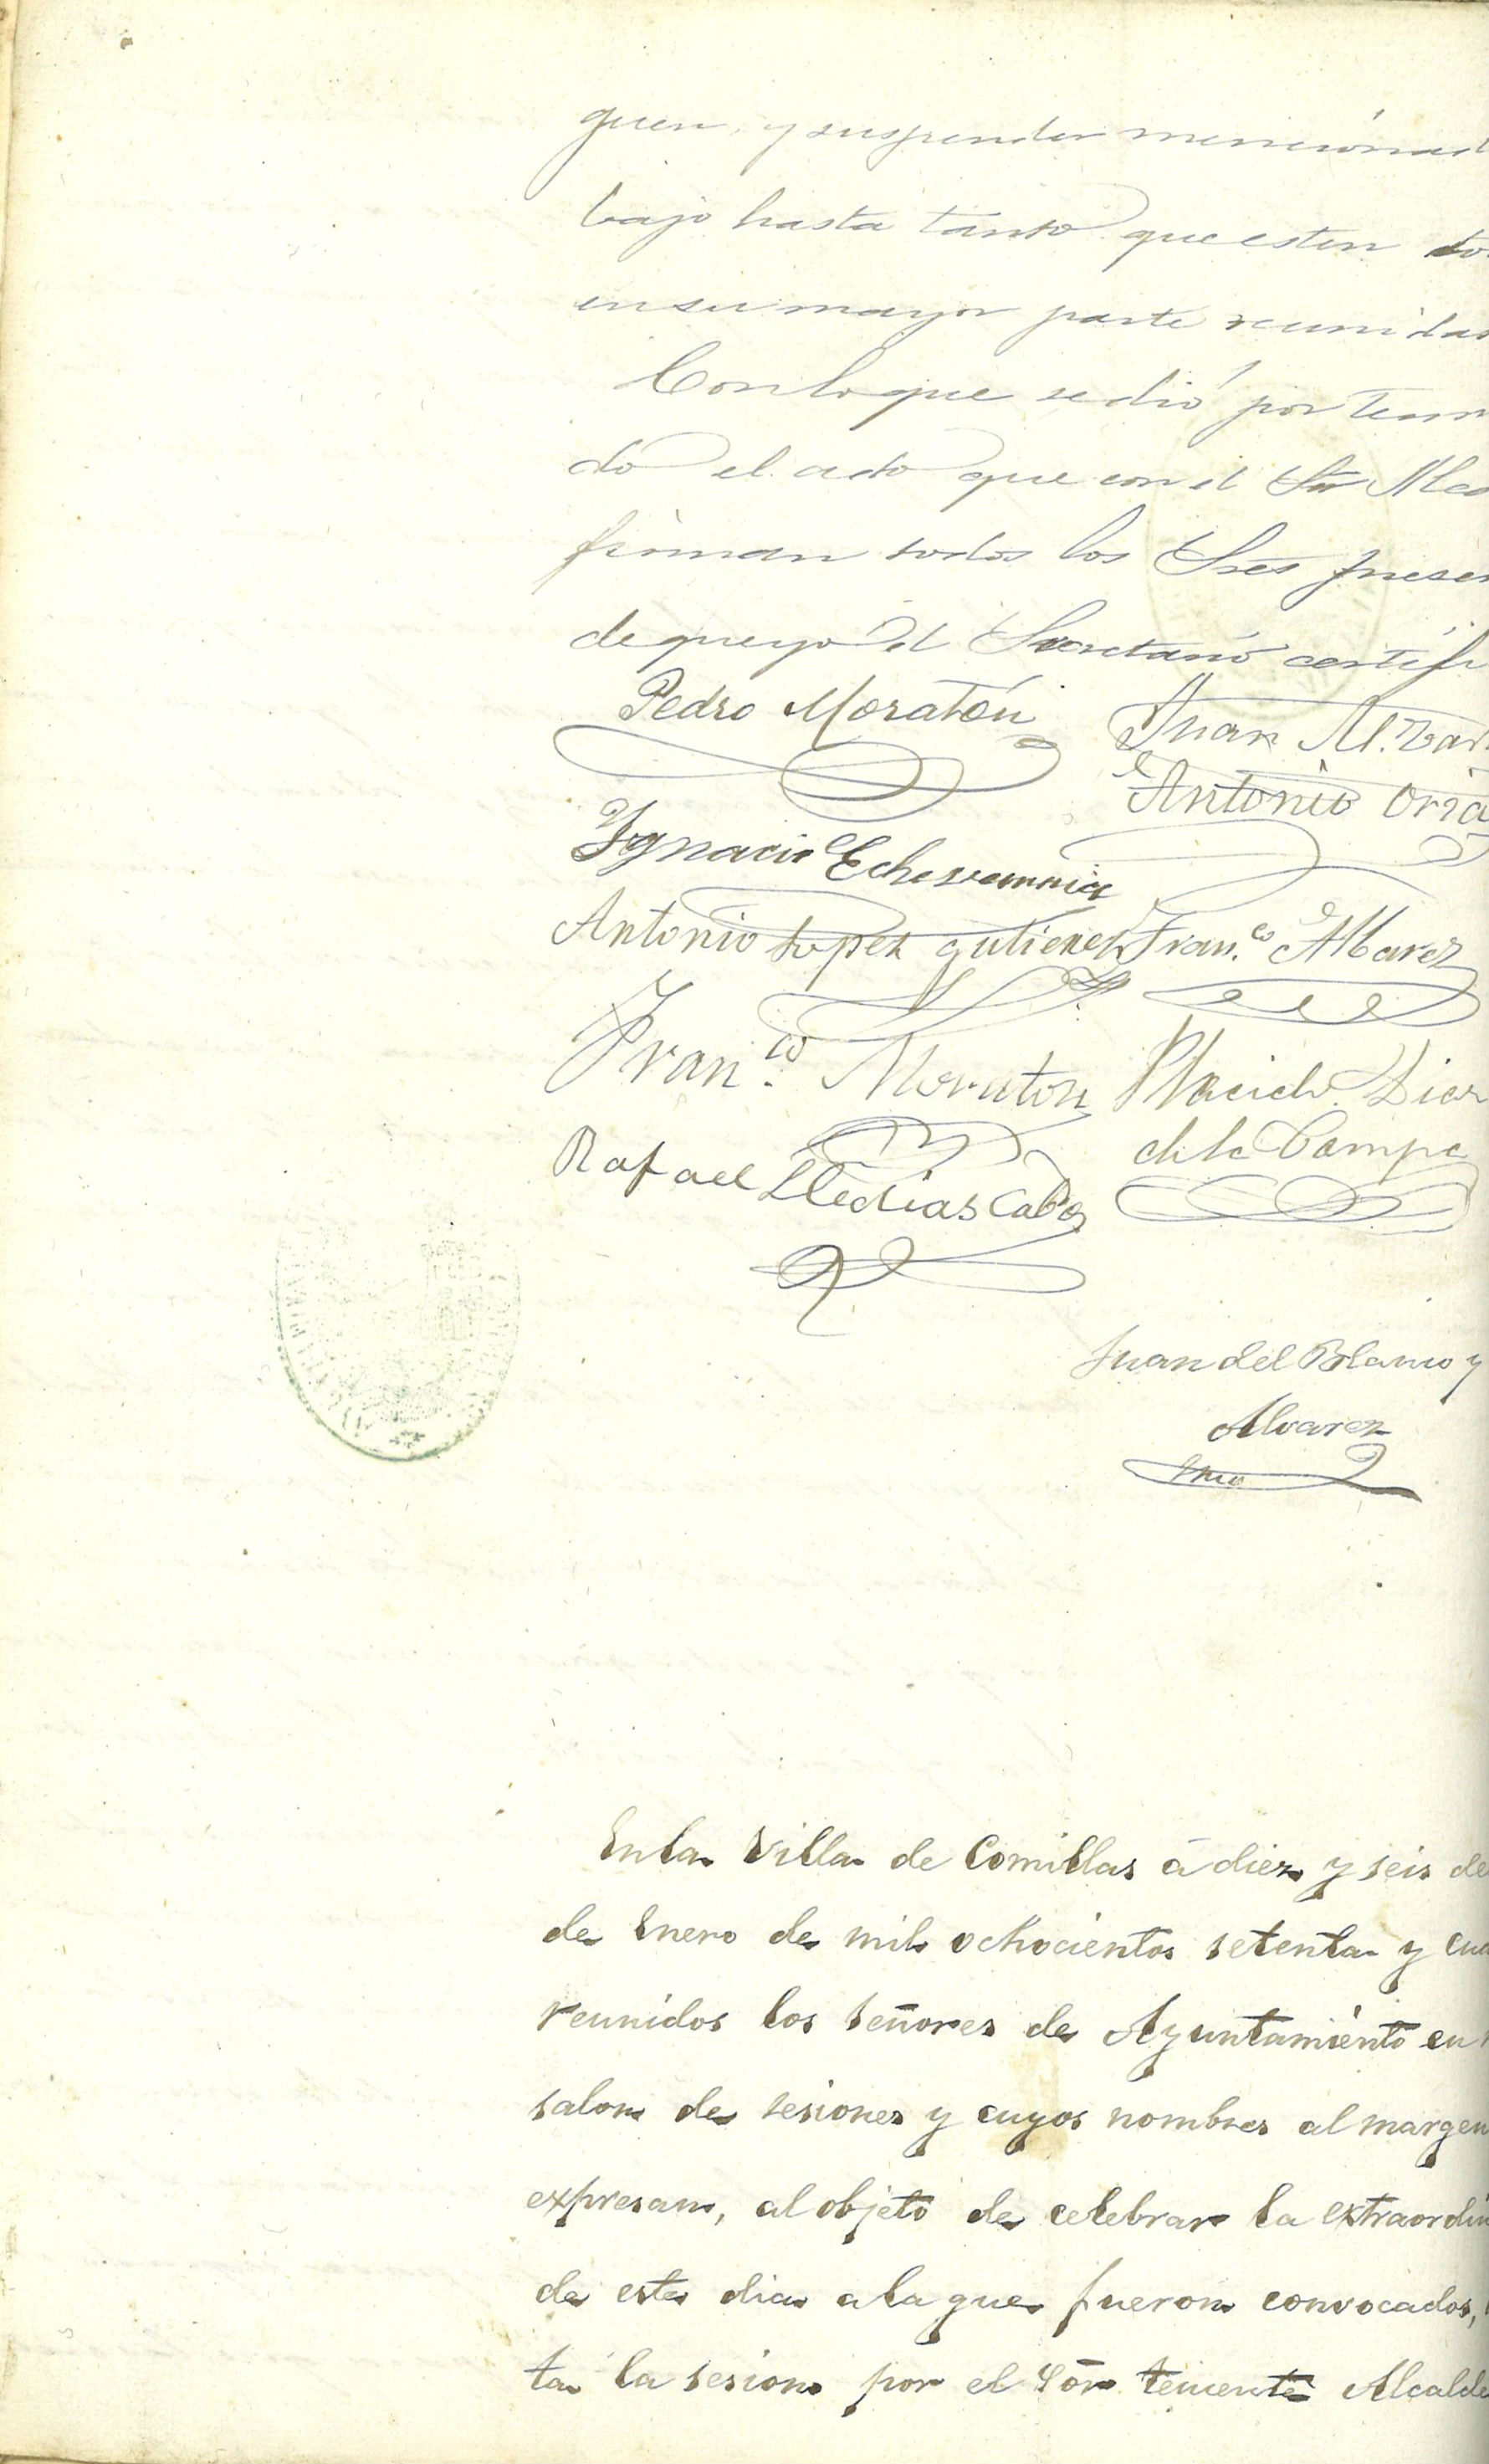 guen, y suspender mencionad
bajo hasta tanto que esten to
en su mayor parte reunidas
Con lo que se dió por term
do el acto que con el Sr Alca
firman todos los Sres presen
de que yo el Secretario certifi
Pedro Moratón Juan M. Var
Antonio Oria
Ygnacio Echevarria
Antonio Lopez gutierrez Fran.co Albarez
Fran.co Moraton Placido Diaz
de la Campa
Rafael Lledias Cabo
Juan del Blanco y
Alvarez
Srio
En la Villa de Comillas á diez y seis de
de Enero de mil ochocientos setenta y cua
reunidos los Señores de Ayuntamiento en
salon de sesiones y cuyos nombres al margen
expresan, al objeto de celebrar la extraordin
de este dia a la que fueron convocados,
ta la sesion por el Sōr teniente Alcalde